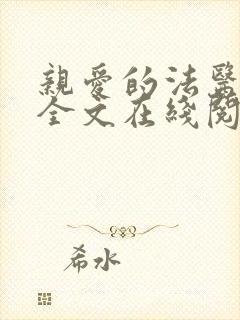 親愛的法醫
全文在綫閱
希水